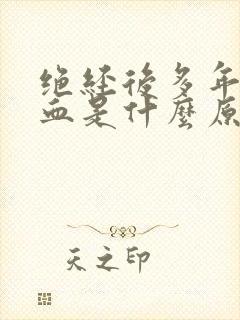 绝经後多年
血是什麼原
天之印